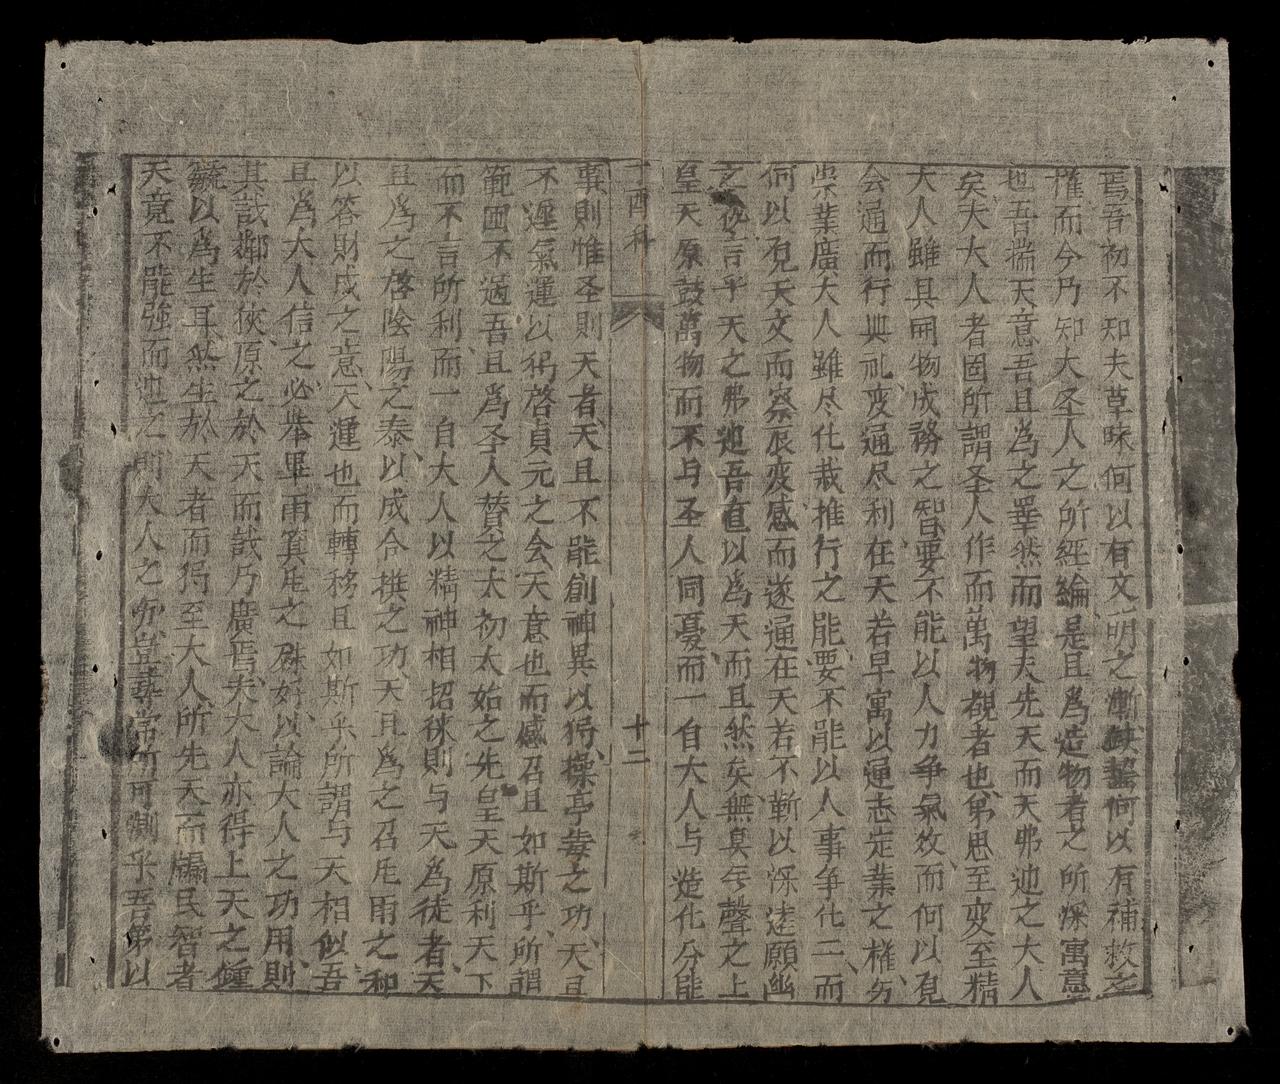 焉吾初不知夫草昧何以有文明之漸缺䥫何以有補救之
權而今乃知大圣人之所經綸是且爲造物者之所深寓意
也吾揣天意吾且爲之睪然而望夫先天而天弗違之大人
矣夫大人者固所謂圣人作而萬物覩者也第思至变至精
大人雖具開物成務之智要不能以人力争氣效而何以見
会通而行典礼变通尽利在天若早寓以通志定業之權
崇業廣大人雖尽化裁推行之能要不能以人事争化工而
何以見天文而察辰变感而遂通在天若不靳以深逹願
之 言乎天之弗違吾直以爲天而且然矣無臭無聲之上
皇天原鼓萬物而不与圣人同憂而一自大人与造化分能
丁酉科
十二
事則惟圣則天者天且不能創神異以獨操亭毒之功天且
不遲氣運以獨啓貞元之会天意也而感召且如斯乎所謂
範囲不過吾且爲圣人賛之太初太始之先皇天原利天下
而不言所利而一自大人以精神相招徠則与天爲徒者天
且爲之啓陰陽之泰以成合撰之功天且爲之召甩雨之和
以答財成之意天運也而轉移且如斯乎所謂与天相似吾
且爲大人信之必舉畢雨箕甩之 好以論大人之功用則
其説鄰於狹原之於天而説乃廣焉夫大人亦得上天之鍾
毓以爲生耳然生於天者而獨至大人所先天而牖民智者
天竟不能強而違之 大人之 豈尋常所可測乎吾第以